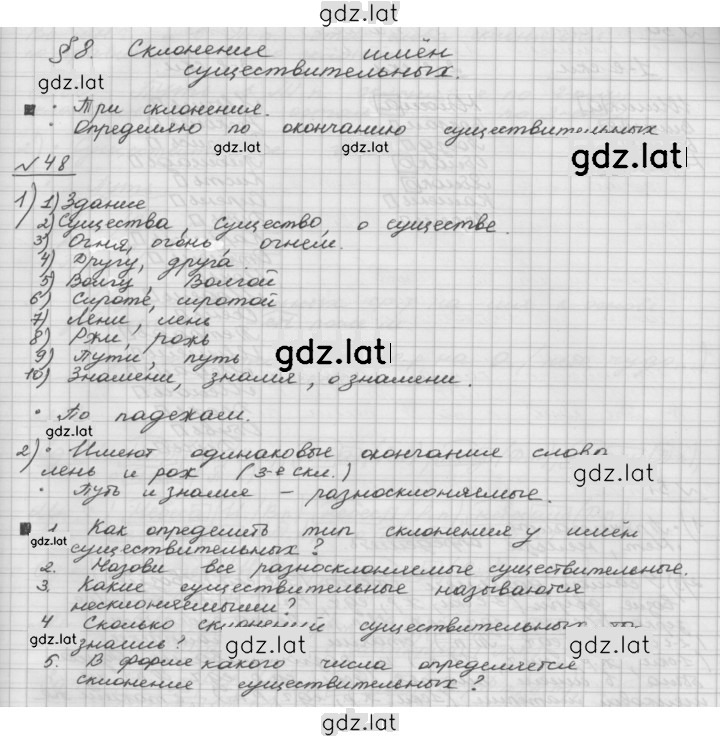 gdz.lat
§ 8. Склонение имён
существительных.
gdz.lat
• Три склонения.
• Определяю по окончанию существительных
gdz.lat gdz.lat gdz.lat
№ 48
1) 1) Здание
2) Существа, существо, о существе.
3) Огня, огонь, огнем.
4) Другу, друга.
5) Волгу, Волгой
6) Сироте, сиротой
7) Лени, лень
8) Ржи, рожь
9) Пути, путь
10) Знамени, знамя, о знамени.
gdz.lat
• По падежам.
gdz.lat
2) • Имеют одинаковые окончание слова
лень и рож (3-е скл.)
gdz.lat
• Путь и знамя – разносклоняемые.
1 Как определить тип склонения у имён
gdz.lat
существительных?
2. Назови все разносклоняемые существительные.
3. Какие существительные называются
несклоняемыми?
4 Сколько склонений существительных ты
gdz.lat gdz.lat gdz.lat
знаешь?
5. В форме какого числа определяется
склонение существительных?
gdz.lat